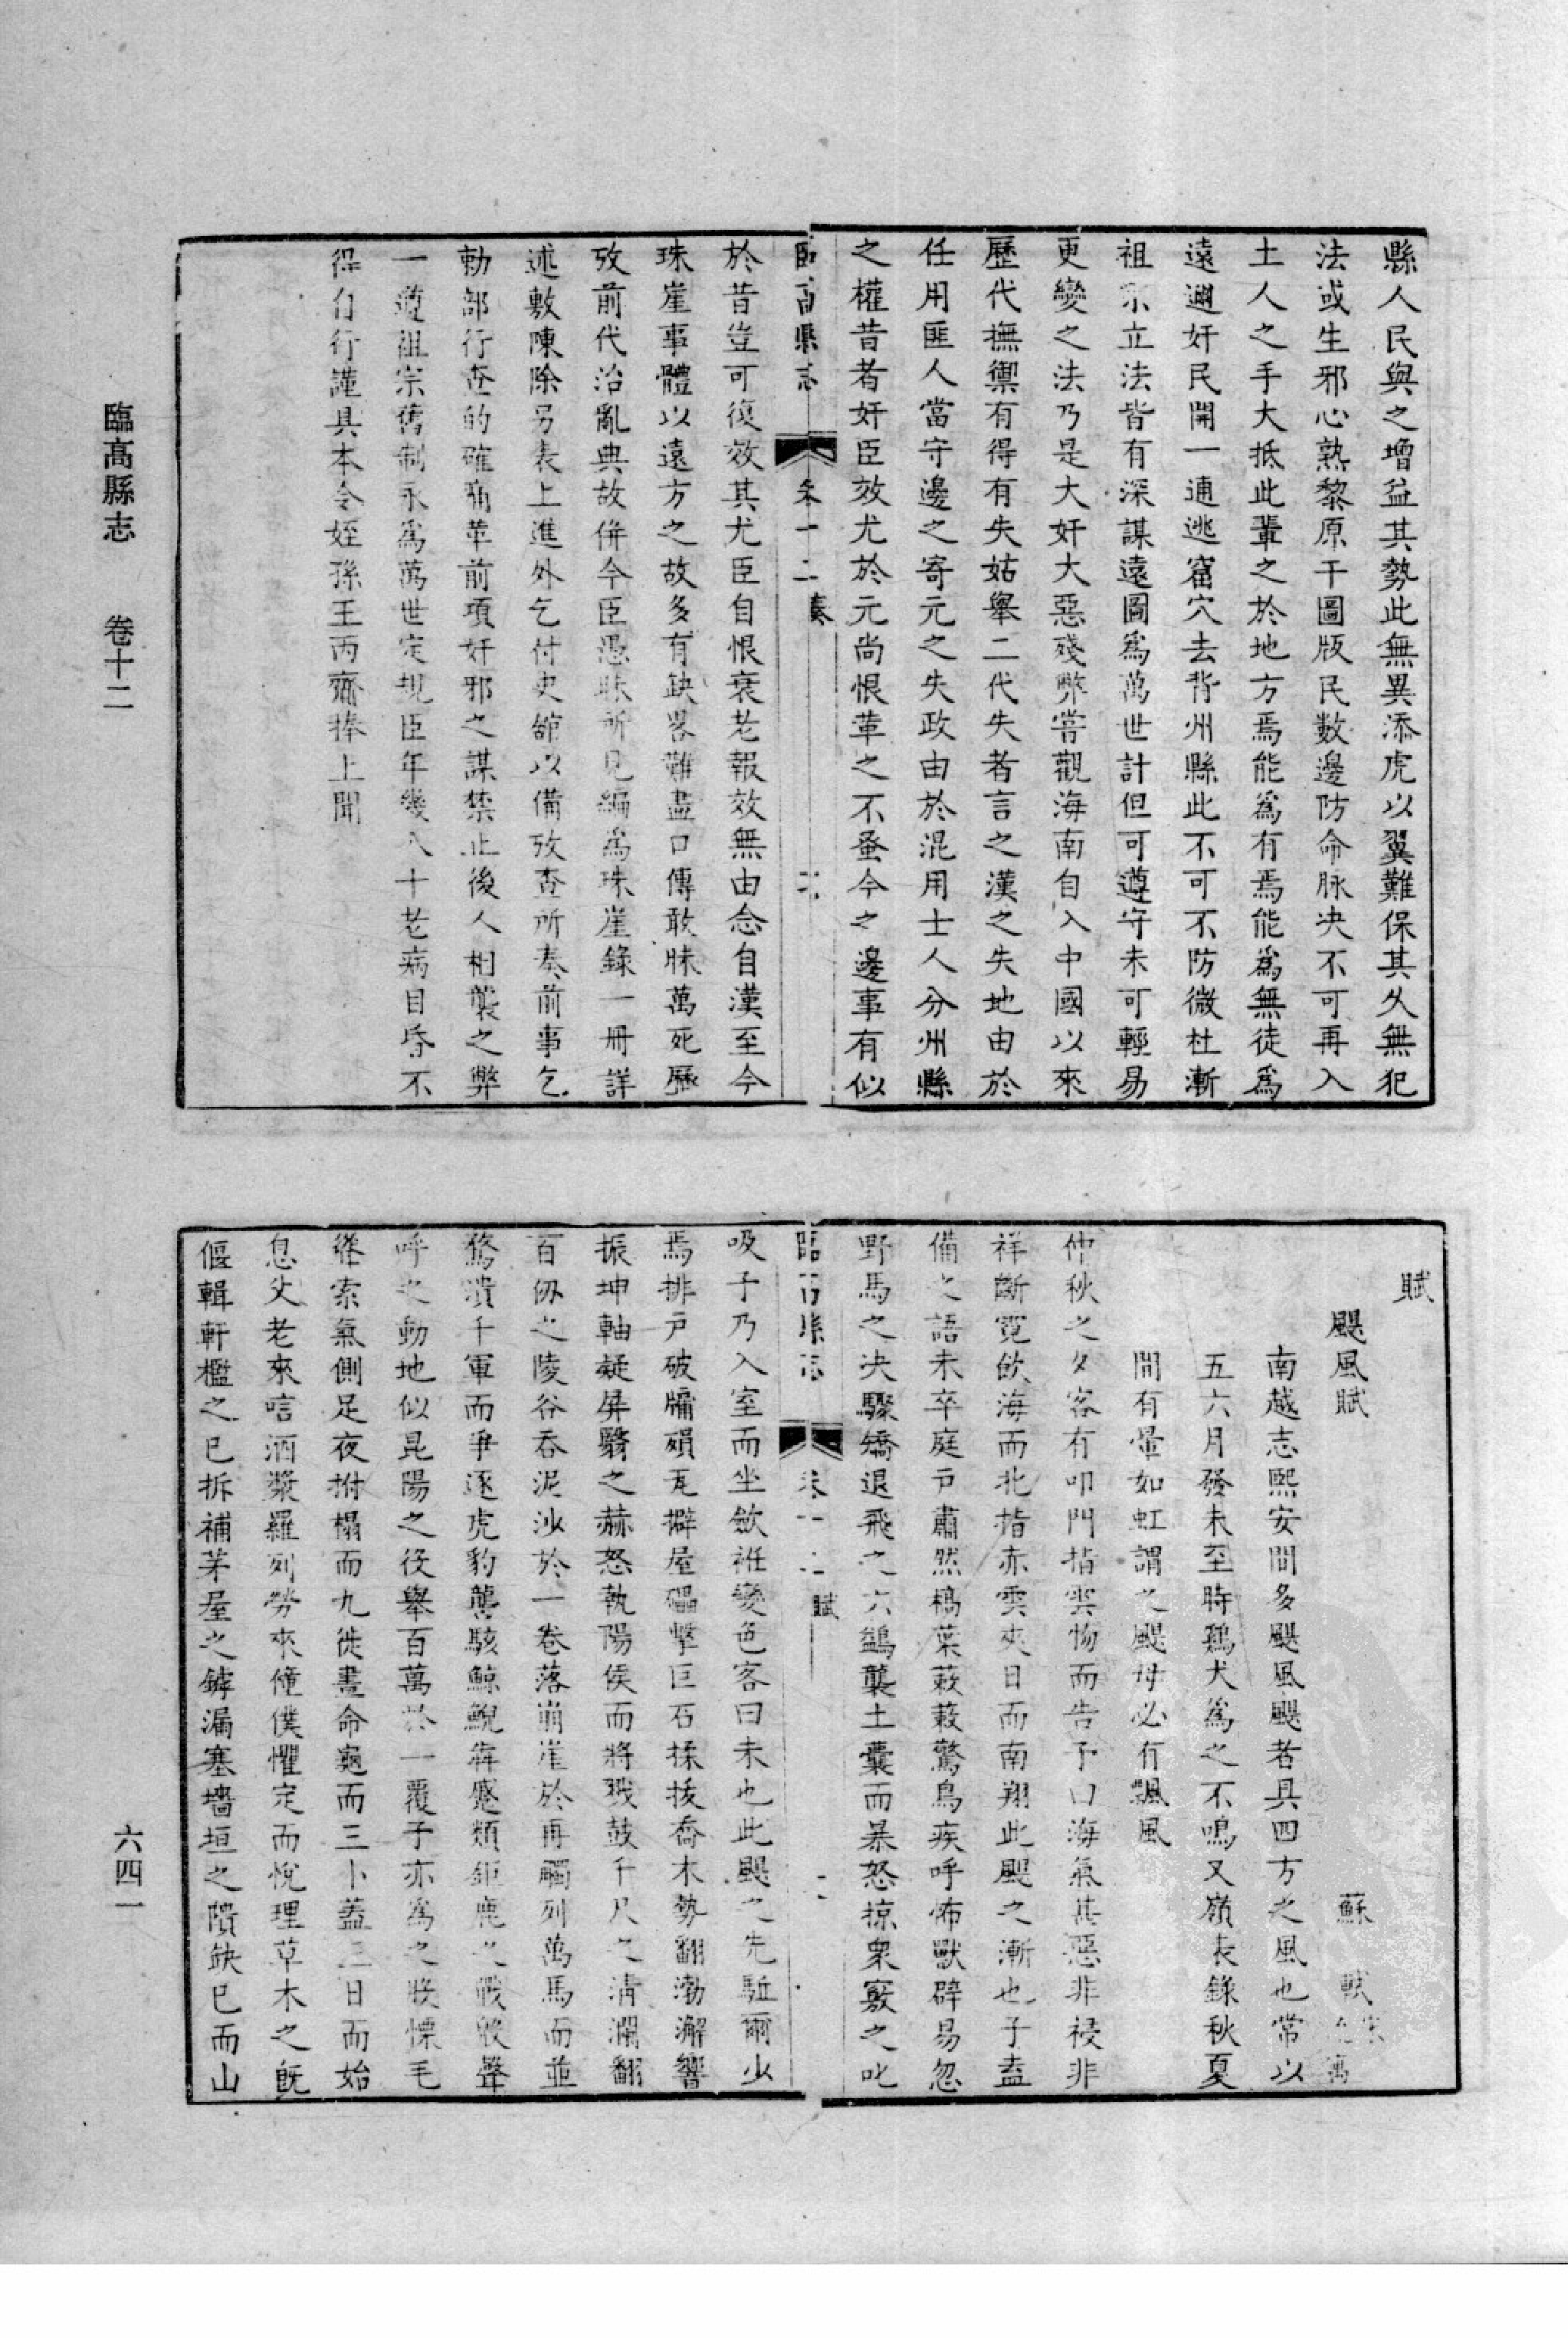 縣人民與之增益其勢此無異添虎以翼難保其久無犯
法或生邪心熟黎原干圖版民數邊防命脉决不可再入
土人之手大抵此輩之於地方焉能爲有焉能爲無徒爲
遠邇奸民開一逋逃窟穴去背州縣此不可不防微杜漸
祖宗立法皆有深謀遠圖爲萬世計但可遵守未可輕易
更變之法乃是大奸大惡殘弊嘗觀海南自入中國以來
歷代撫禦有得有失姑舉二代失者言之漢之失地由於
任用匪人當守邊之寄元之失政由於混用士人分州縣
之權昔者奸臣效尤於元尚恨革之不蚤今之邊事有似
臨高縣志 卷十二 奏
於昔豈可復效其尤臣自恨衰老報效無由念自漢至今
珠崖事體以遠方之故多有缺畧難盡口傳敢昧萬死歷
攷前代治亂典故併今臣愚昧所見編爲珠崖錄一冊詳
述敷陳除另表上進外乞付史館以備攷查所奏前事乞
勅部行查的確痛革前項奸邪之謀禁止後人相襲之弊
一遵祖宗舊制永爲萬世定規臣年幾八十老病目昏不
得自行謹具本令姪孫王丙齋捧上聞
臨高縣志 卷十二
賦
颶風賦 蘇
南越志熙安間多颶風颶者具四方之風也常以
五六月發未至時鷄犬爲之不鳴又嶺表錄秋夏
間有暈如虹謂之颶母必有颶風
仲秋之夕客有叩門指雲物而告予曰海氣甚惡非祲非
祥斷霓飲海而北指赤雲夾日而南翔此颶之漸也子盍
備之語未卒庭戸肅然槁葉蔌蔌驚鳥疾呼怖獸辟易忽
野馬之决驟矯退飛之六鷁襲土囊而暴怒掠衆竅之叱
臨高縣志 卷十二 賦
吸予乃入室而坐歛袵變色客曰未也此颶之先駈爾少
焉排戸破牖殞瓦擗屋礧擊巨石揉拔喬木勢翻渤澥響
振坤軸疑屏翳之赫怒執陽侯而將戮鼓千尺之清瀾翻
百仞之陵谷吞泥沙於一卷落崩崖於再觸列萬馬而並
驚潰千軍而爭逐虎豹讋駭鯨鯢犇蹙類鉅鹿之戰殷聲
呼之動地似昆陽之役舉百萬於一覆予亦爲之股慄毛
聳索氣側足夜拊榻而九徙晝命龜而三卜蓋三日而始
息父老來唁酒漿羅列勞來僮僕懼定而悅理草木之旣
偃輯軒檻之已拆補茅屋之罅漏塞墻垣之隤缺已而山
六四一